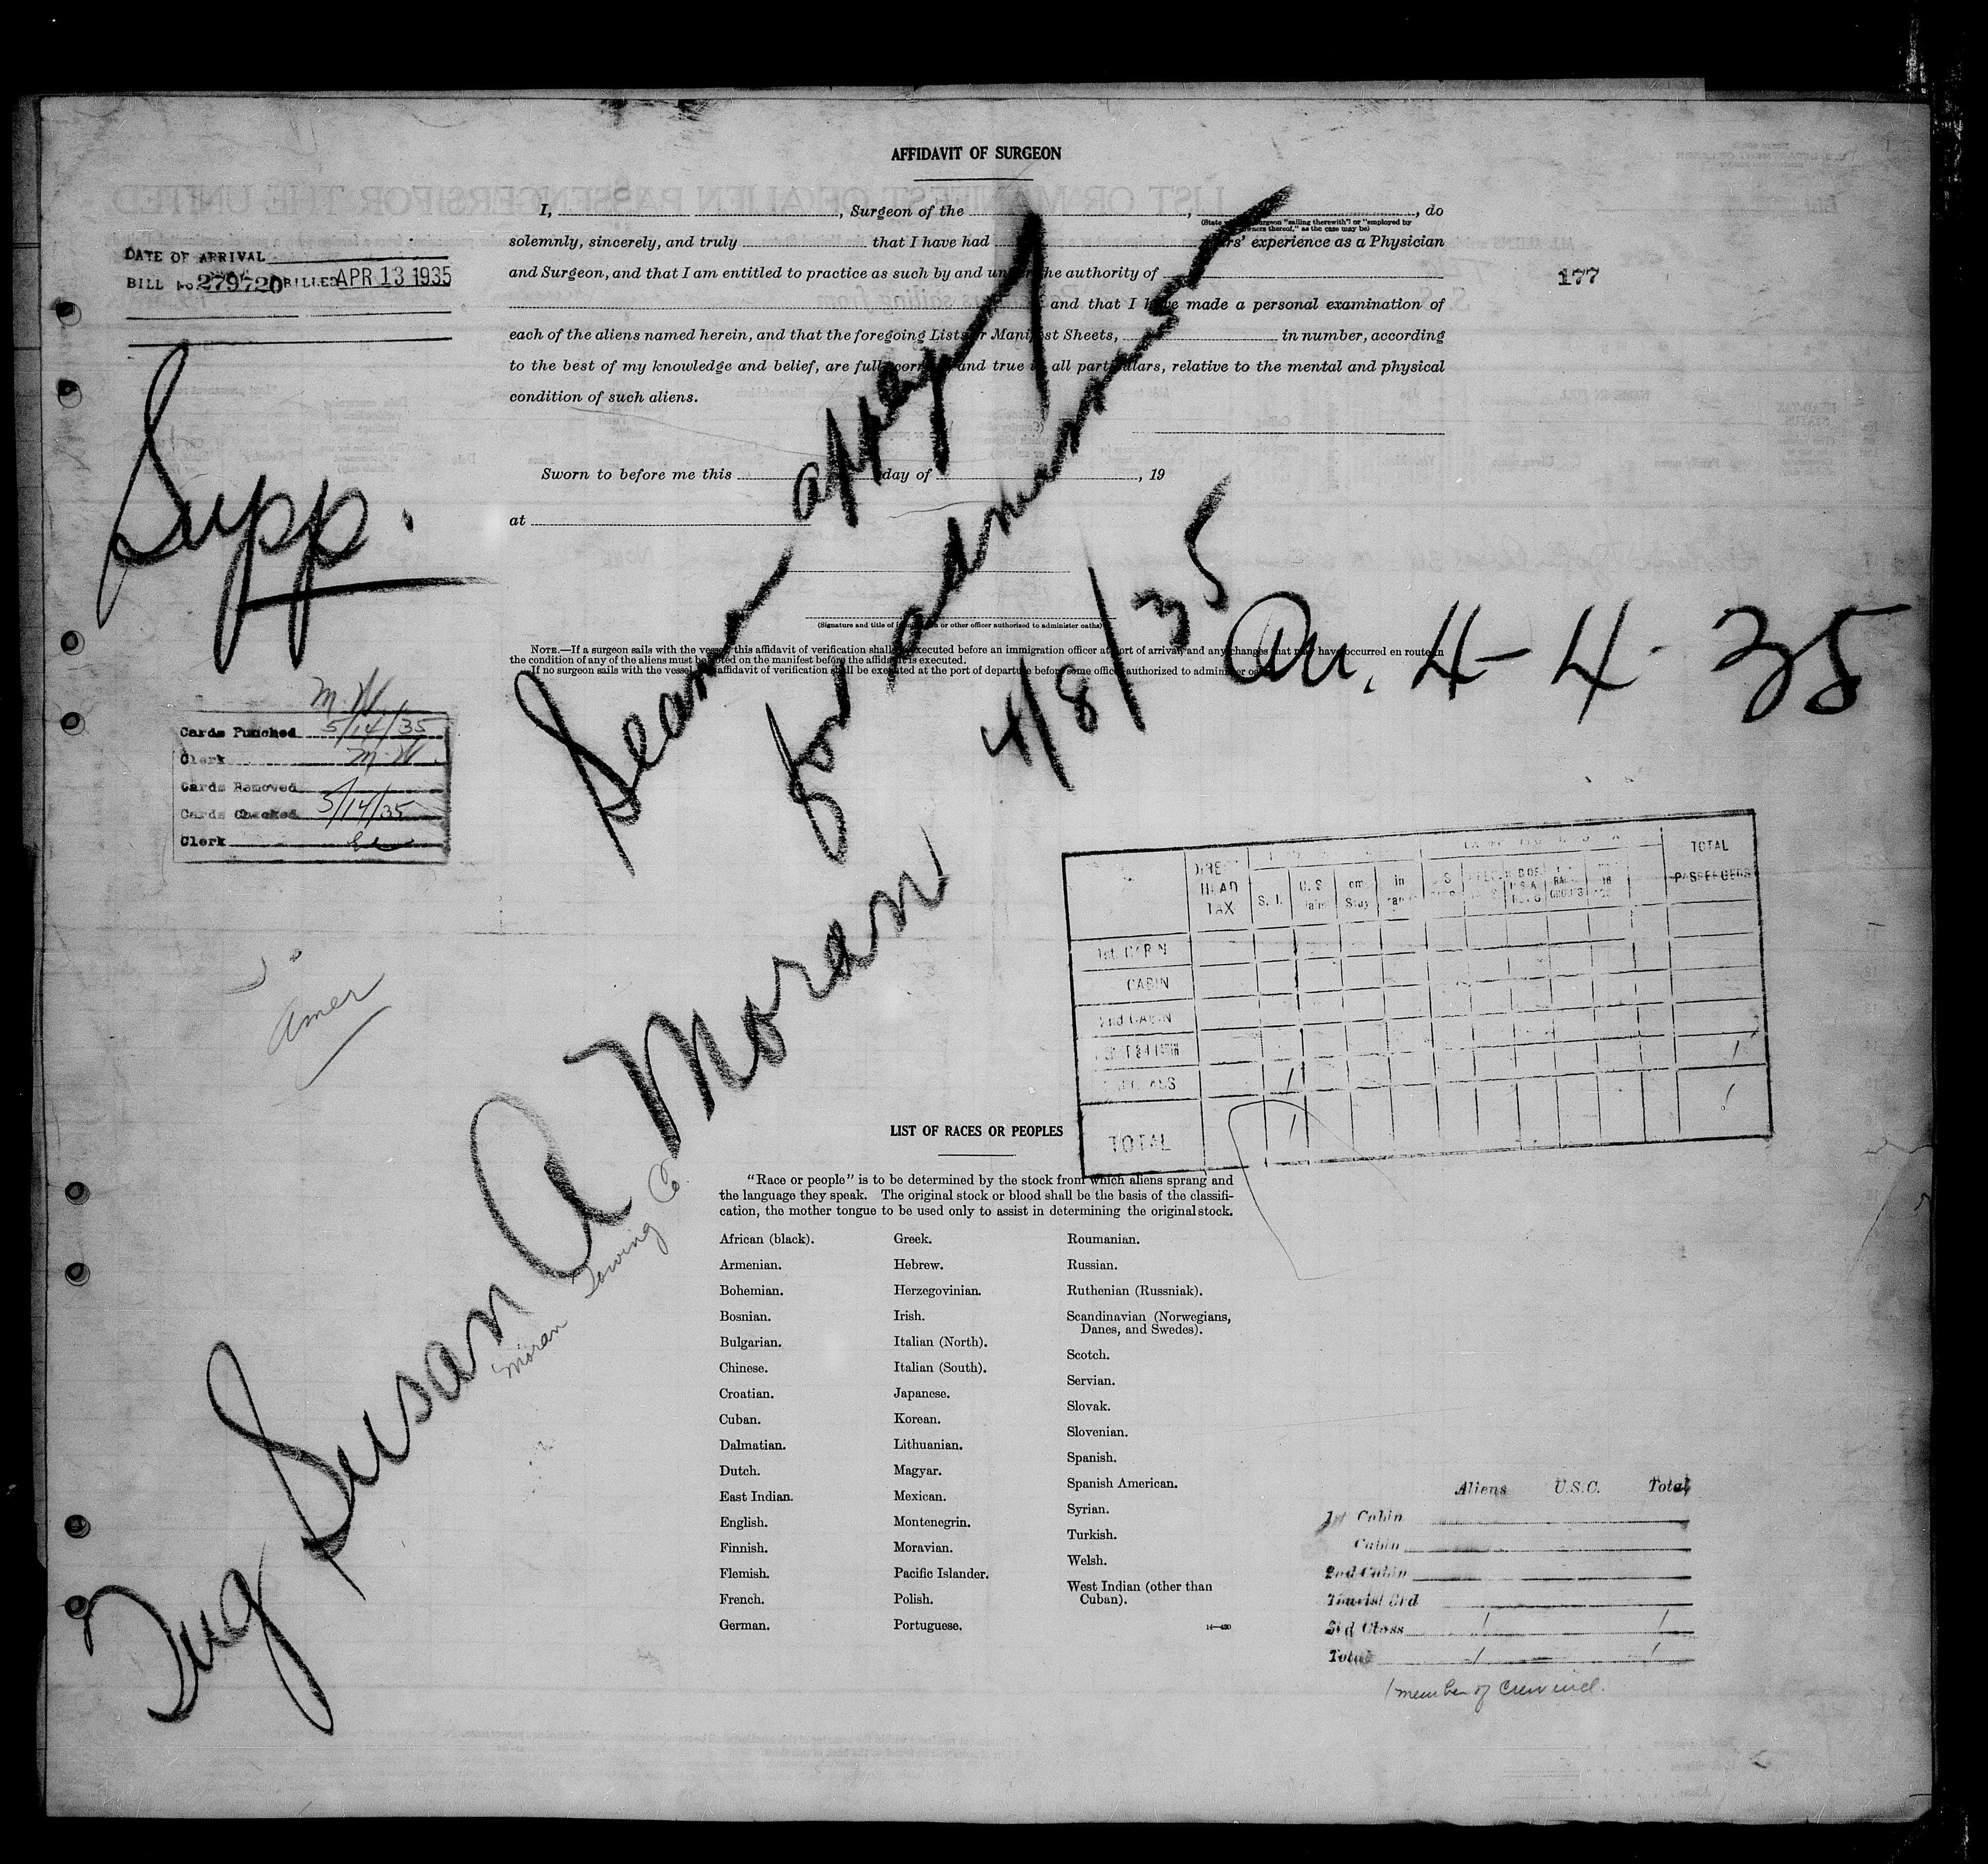 AFFIDAVIT OF SURGEON
I, , Surgeon of the , , do
(State whether Surgeon "sailing therewith" or "employed by owners thereof," as the case may be)
solemnly, sincerely, and truly that I have had years' experience as a Physician
and Surgeon, and that I am entitled to practice as such by and under the authority of
and that I have made a personal examination of
each of the aliens named herein, and that the foregoing Lists or Manifest Sheets, in number, according
to the best of my knowledge and belief, are full, correct, and true in all particulars, relative to the mental and physical
condition of such aliens.
Sworn to before me this day of , 19
at
(Signature and title of immigration or other officer authorized to administer oaths)
NOTE.—If a surgeon sails with the vessel, this affidavit of verification shall be executed before an immigration officer at port of arrival, and any changes that may have occurred en route in
the condition of any of the aliens must be noted on the manifest before the affidavit is executed.
If no surgeon sails with the vessel affidavit of verification shall be executed at the port of departure before some officer authorized to administer oaths.
DATE OF ARRIVAL
BILL No 279720 BILLED APR 13 1935
177
Supp.
Seaman applying
for admission
4/8/35
Arr. 4-4-35
M.W.
Cards Punched 5/14/35
Clerk M.W.
Cards Removed
Cards Checked 5/14/35
Clerk
Amer
Tug Susan A Moran
Moran Towing Co.
DIRECT HEAD TAX
S. I.
U. S.
TOTAL PASSENGERS
1st CABIN
CABIN
2nd CABIN
1
1
TOTAL 1 1
LIST OF RACES OR PEOPLES
"Race or people" is to be determined by the stock from which aliens sprang and
the language they speak. The original stock or blood shall be the basis of the classifi-
cation, the mother tongue to be used only to assist in determining the original stock.
African (black).
Armenian.
Bohemian.
Bosnian.
Bulgarian.
Chinese.
Croatian.
Cuban.
Dalmatian.
Dutch.
East Indian.
English.
Finnish.
Flemish.
French.
German.
Greek.
Hebrew.
Herzegovinian.
Irish.
Italian (North).
Italian (South).
Japanese.
Korean.
Lithuanian.
Magyar.
Mexican.
Montenegrin.
Moravian.
Pacific Islander.
Polish.
Portuguese.
Roumanian.
Russian.
Ruthenian (Russniak).
Scandinavian (Norwegians,
Danes, and Swedes).
Scotch.
Servian.
Slovak.
Slovenian.
Spanish.
Spanish American.
Syrian.
Turkish.
Welsh.
West Indian (other than
Cuban).
14—430
Aliens U.S.C. Total
1st Cabin
Cabin
2nd Cabin
Tourist 3rd
3rd Class 1 1
Total 1 1
1 member of crew incl.